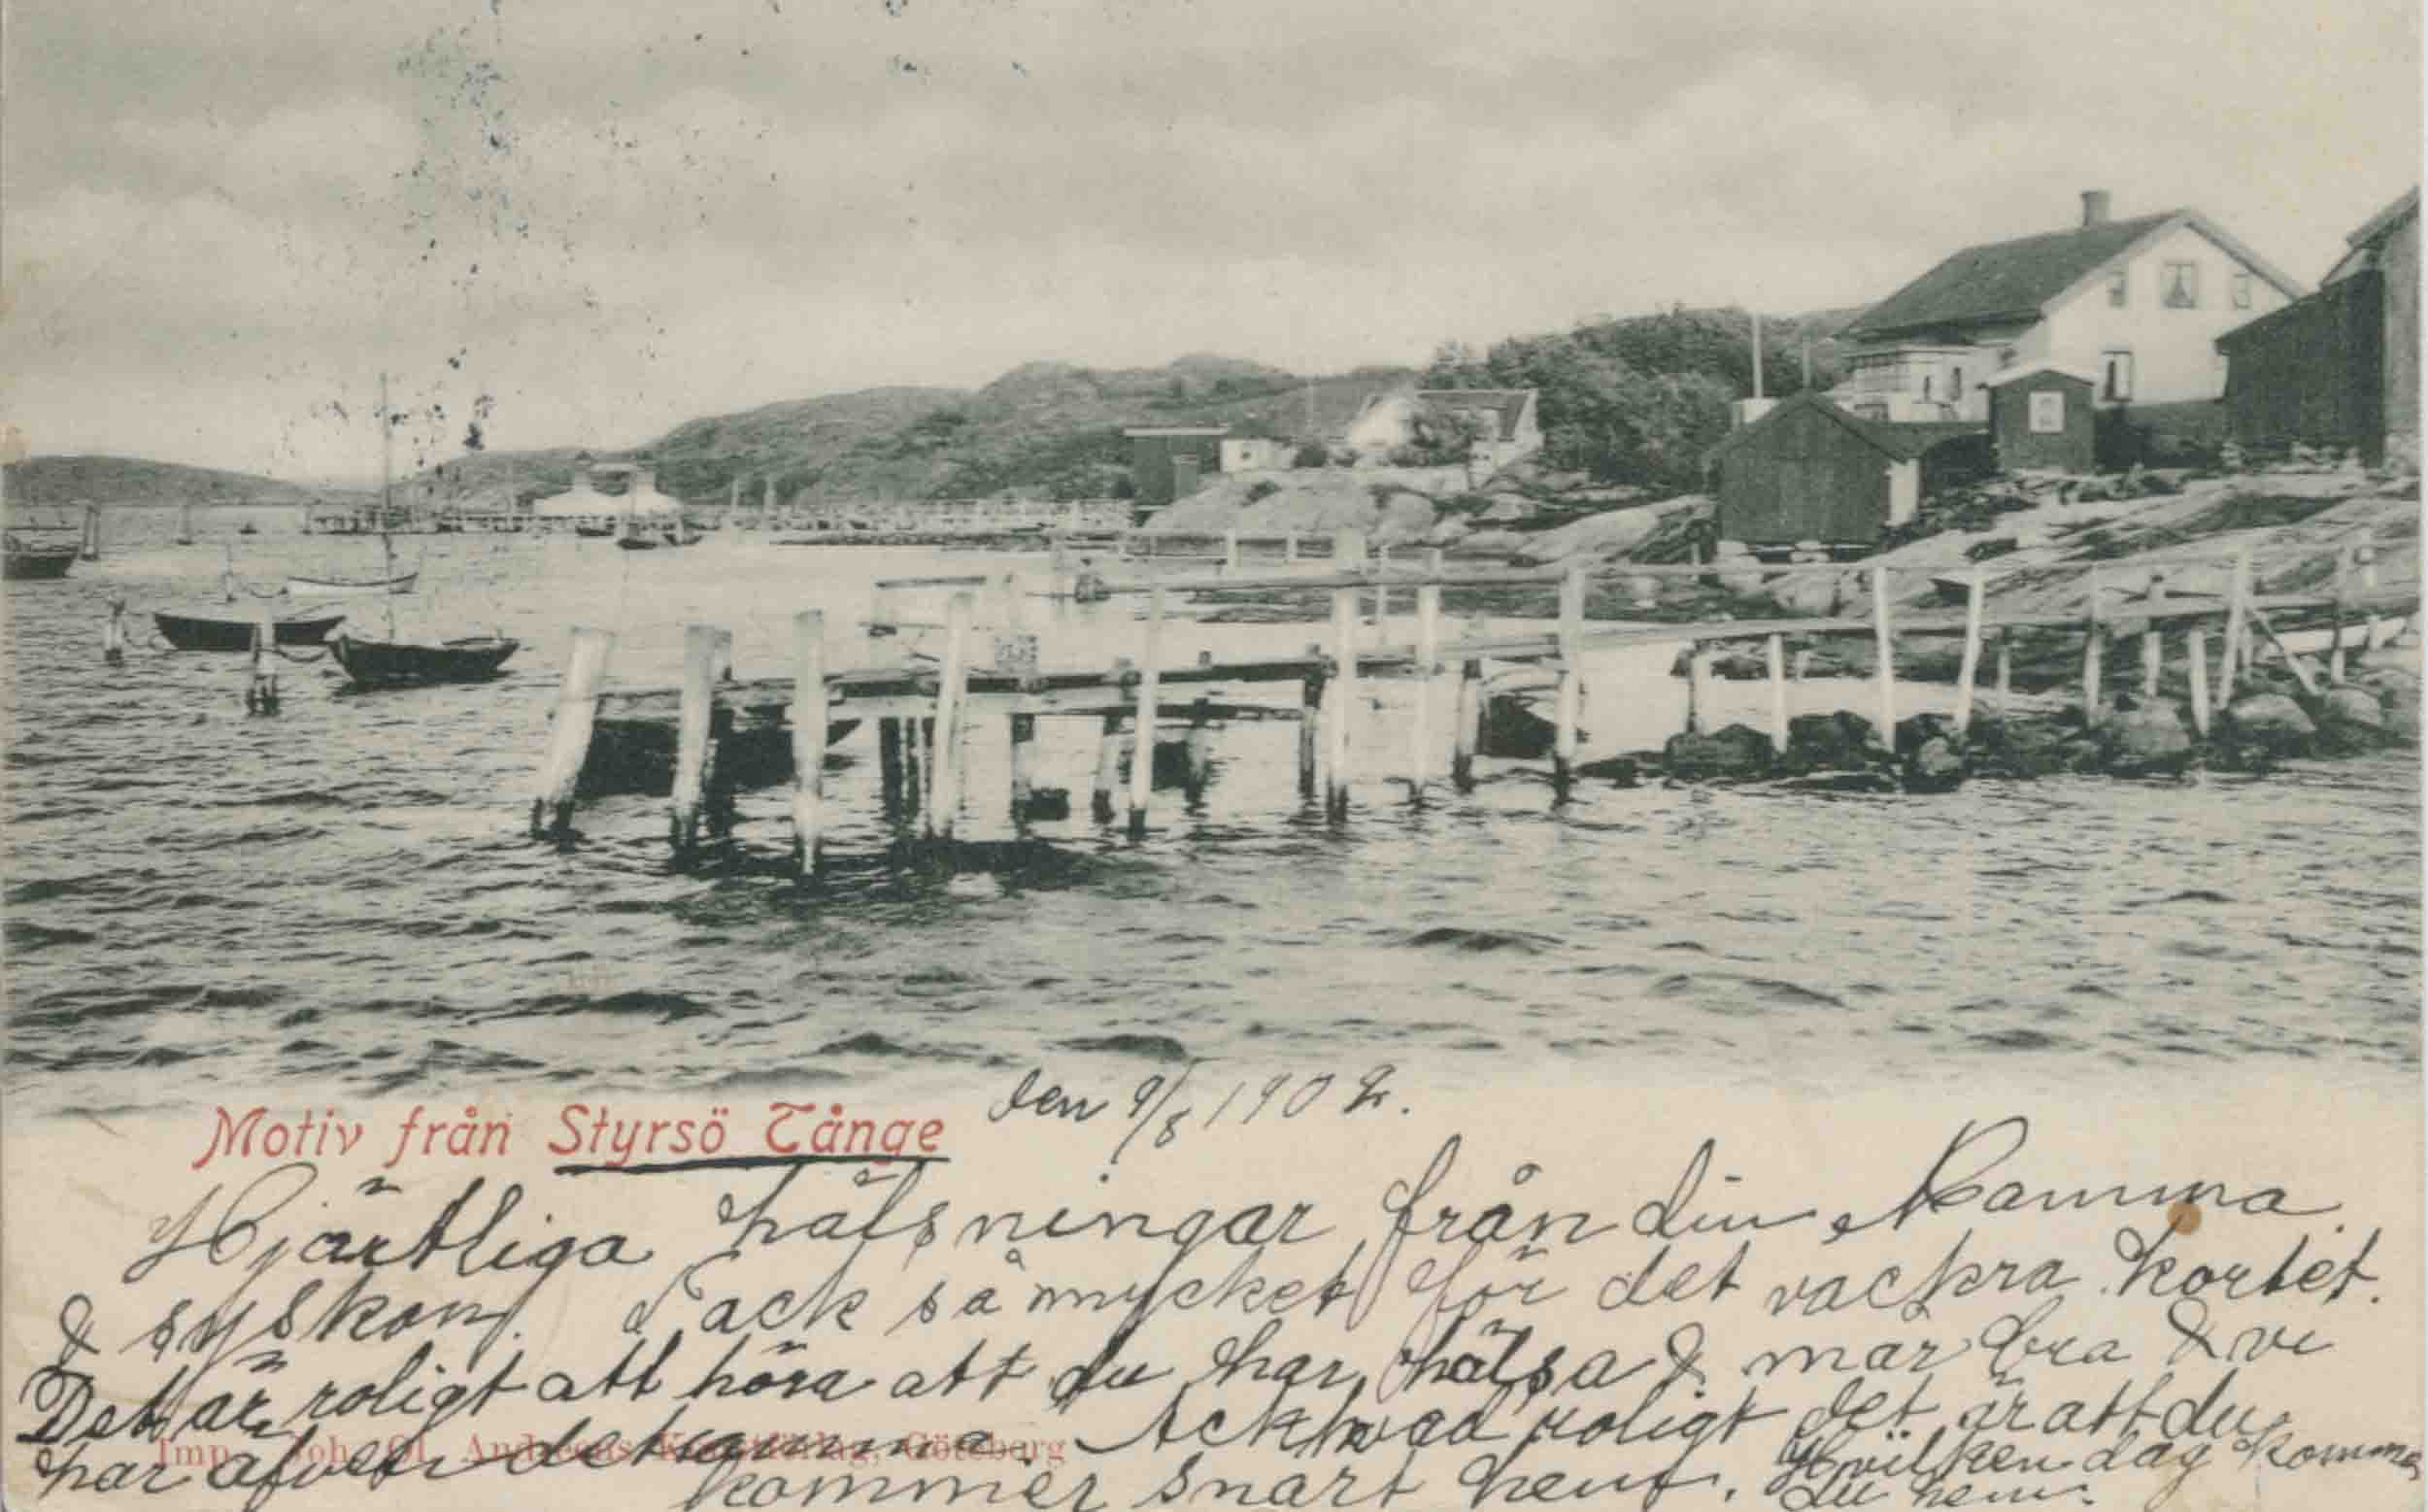 Motiv från Styrsö Tånge den 9/8 1902.
Hjärtliga hälsningar från din Mamma
& syskon. Tack så mycket för det vackra kortet.
Det är roligt att höra att du har hälsa & mår bra & vi
har afven detsamma. Ack hvad roligt det är att du
Imp. Joh. Ol. Andreens Konstförlag, Göteborg
kommer snart hem. Hvilken dag komme
du hem.